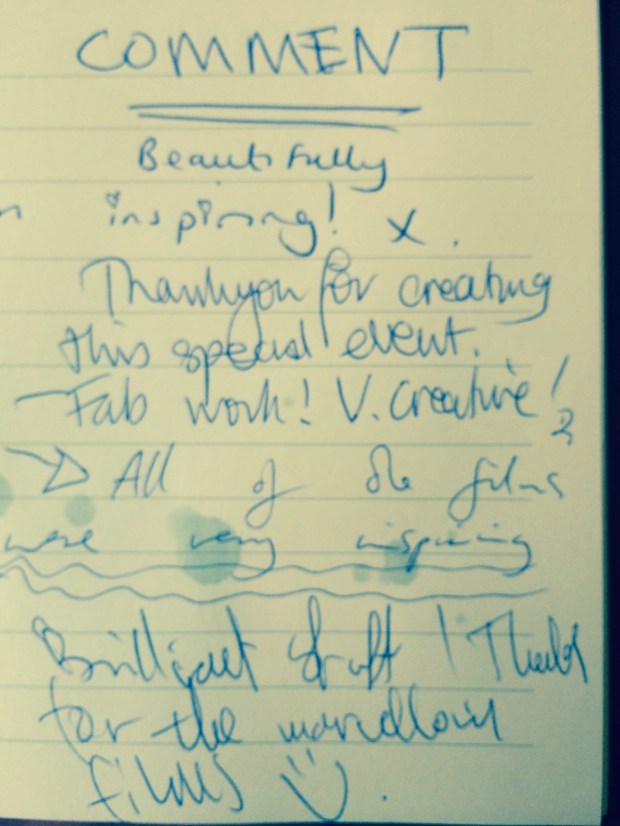 COMMENT
Beautifully
inspiring! x.
Thankyou for creating
this special event.
Fab work! V. Creative!
All of the films
were very inspiring
Brilliant stuff! Thanks
for the marvellous
films